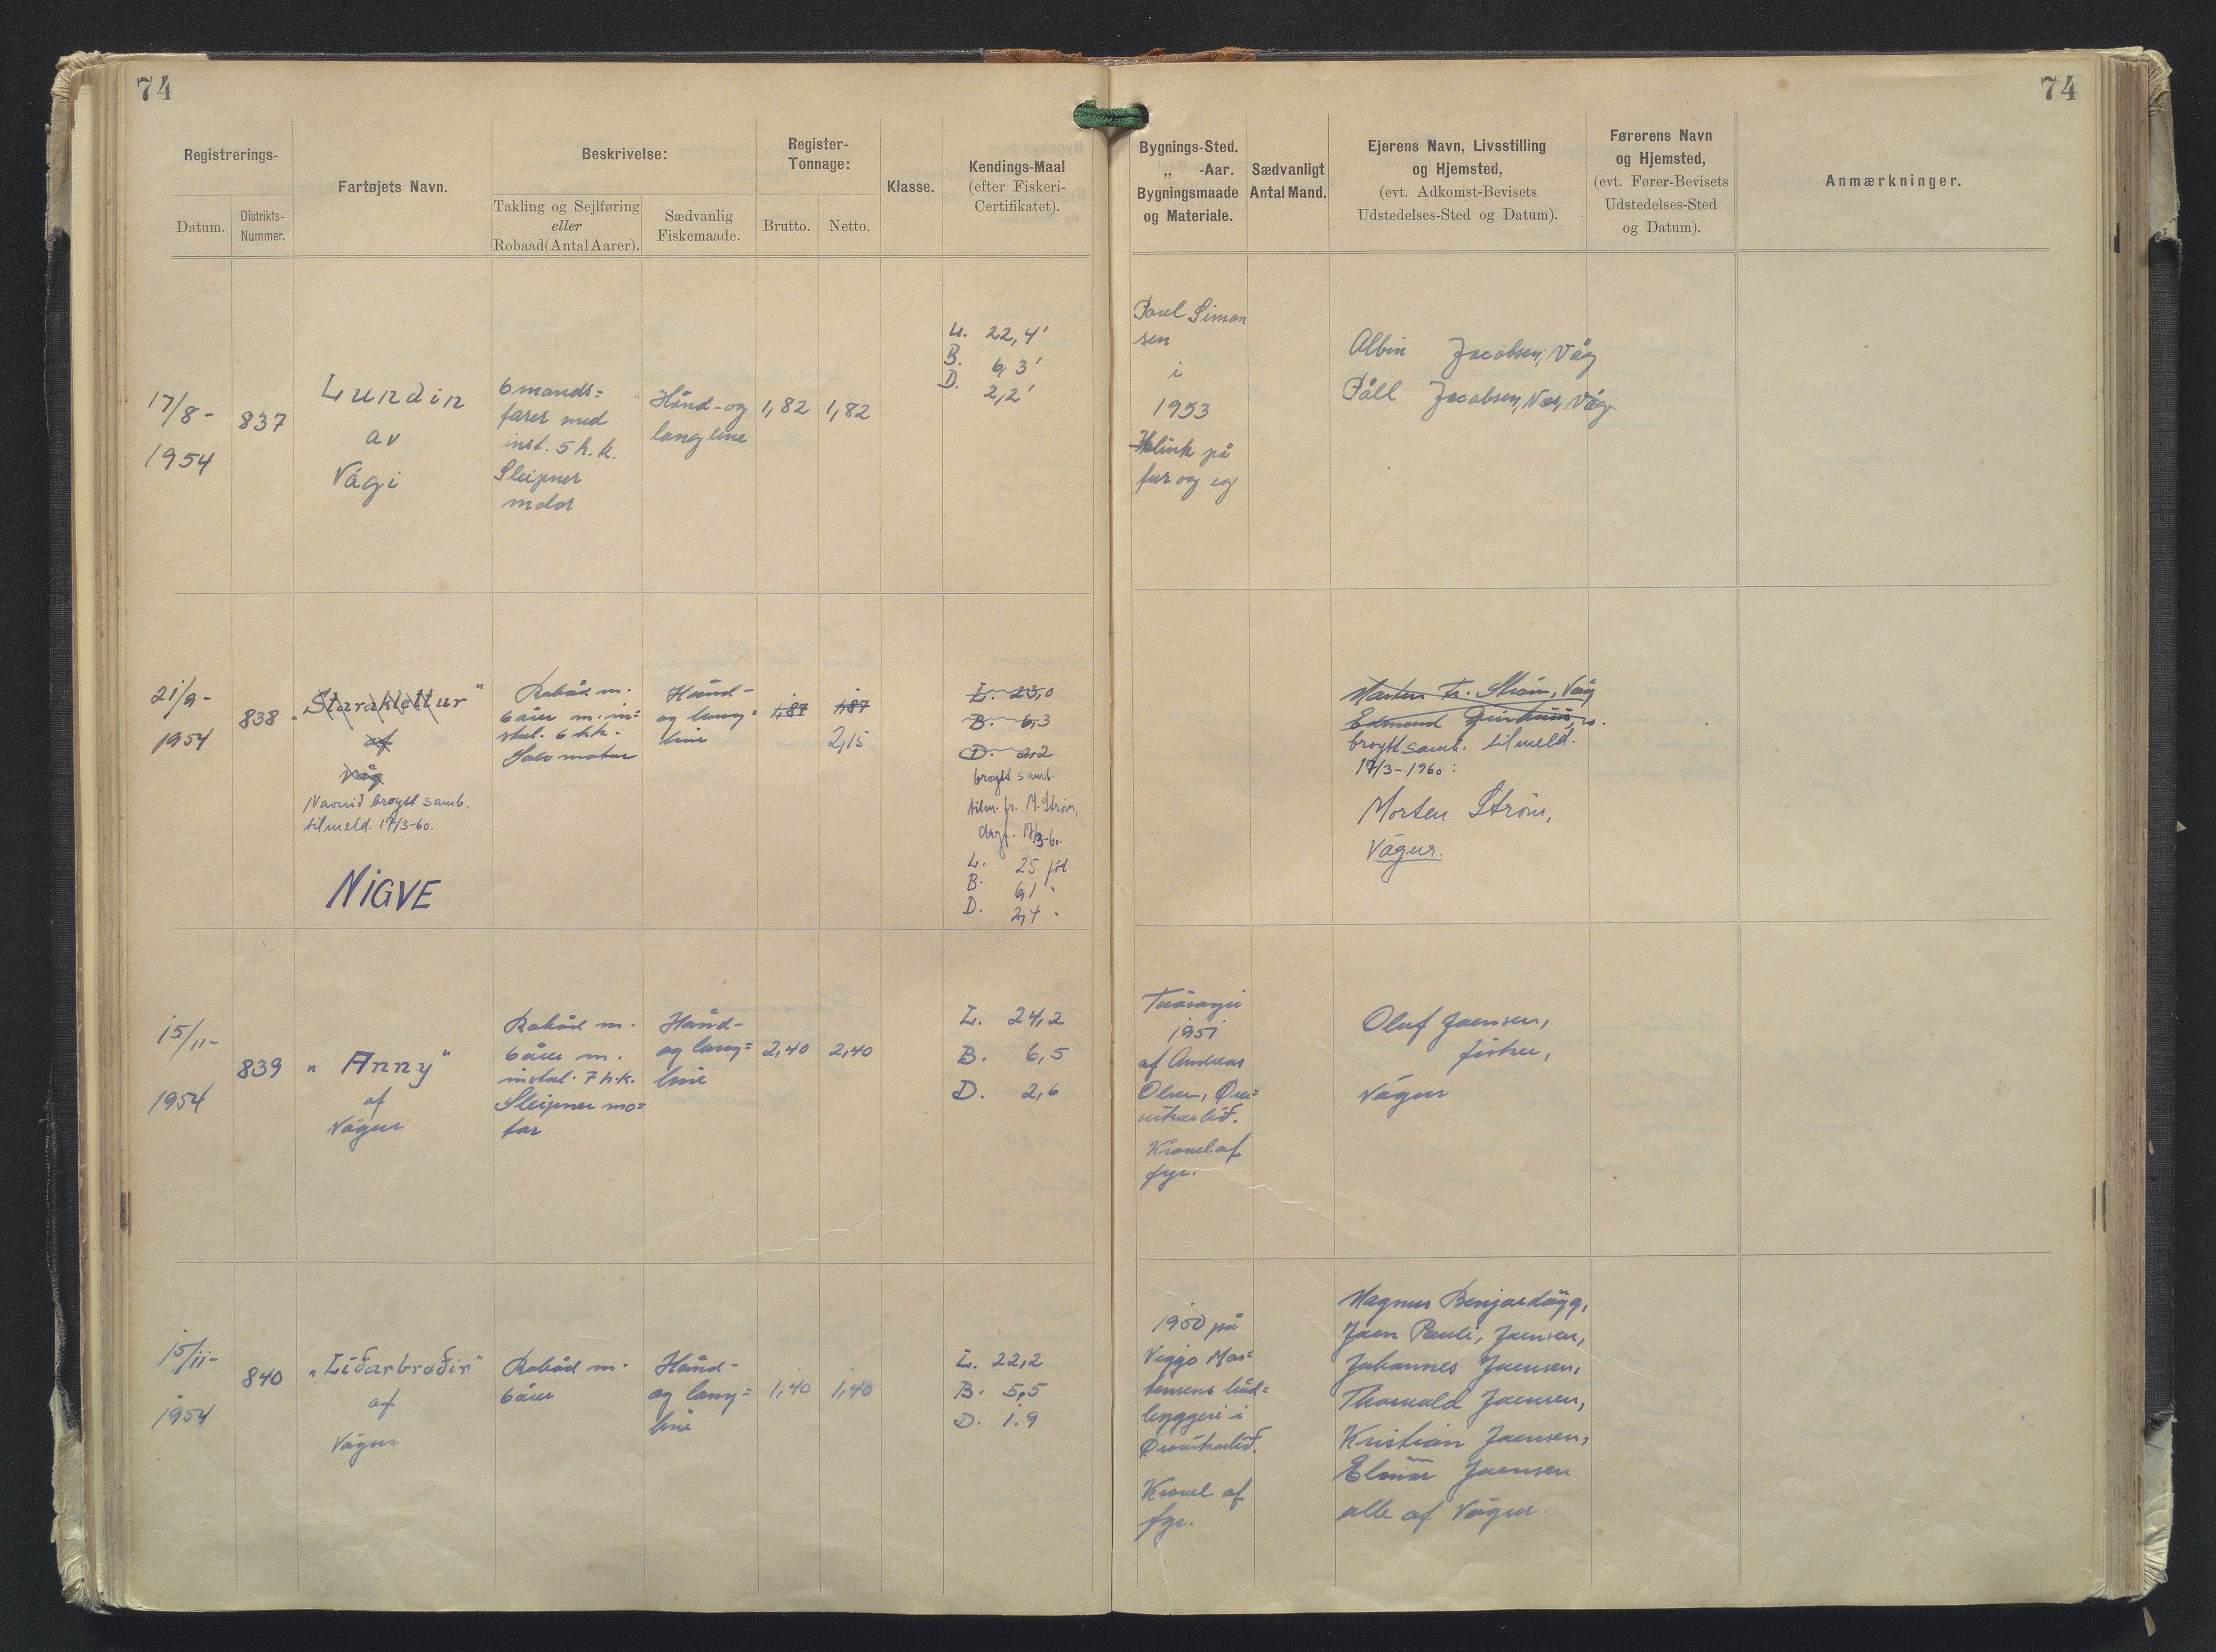 74
74
Registrerings-
Datum.
Distrikts-
Nummer.
Fartøjets Navn.
Beskrivelse:
Takling og Sejlføring
eller
Robaad (Antal Aarer).
Sædvanlig
Fiskemaade.
Register-
Tonnage:
Brutto.
Netto.
Klasse.
Kendings-Maal
(efter Fiskeri-
Certifikatet).
Bygnings-Sted.
„ -Aar.
Bygningsmaade
og Materiale.
Sædvanligt
Antal Mand.
Ejerens Navn, Livsstilling
og Hjemsted,
(evt. Adkomst-Bevisets
Udstedelses-Sted og Datum).
Førerens Navn
og Hjemsted,
(evt. Fører-Bevisets
Udstedelses-Sted
og Datum).
Anmærkninger.
17/8-
1954
837
Lundin
av
Vági
6mands=
farer med
inst. 5 h.k.
Sleipner
motor
Hånd- og
langline
1,82
1,82
L. 22,4'
B. 6,3'
D. 2,2'
Poul Simon
sen
i
1953
Klink på
fur og eg
Albin Jacobsen, Våg
Páll Jacobsen, Nes, Våg
21/9-
1954
838
"Staraklettur"
af
Våg
Navnið broytt samb.
tilmeld. 17/3-60.
NIGVE
Robåd m.
6 årer m. in=
stal. 6 h.k.
Solo motor
Hånd-
og lang=
line
1,87
1,87
2,15
L. 23,0
B. 6,3
D. 2,2
broytt samb.
tilm. fr. M. Strøm,
dag. 17/3-60.
L. 25 fót
B. 6,1 "
D. 2,4 "
Morten Fr. Strøm, Våg
Edmund
broytt samb. tilmeld.
17/3-1960:
Morten Strøm,
Vágur.
15/11-
1954
839
"Anny"
af
Vágur
Robåd m.
6 årer m.
instal. 7 h.k.
Sleipner mo=
tor
Hånd-
og lang=
line
2,40
2,40
L. 24,2
B. 6,5
D. 2,6
Tvøroyri
1951
af Andreas
Olsen, Øra=
víkarlið.
Kravel af
fyr.
Oluf Joensen,
fisker,
Vágur
15/11-
1954
840
"Líðarbrøðir"
af
Vágur
Robåd m.
6 årer
Hånd-
og lang=
line
1,40
1,40
L. 22,2
B. 5,5
D. 1.9
1950 på
Viggo Mor=
tensens båd=
byggeri i
Øravíkarlíð.
Kravel af
fyr.
Magnus Benjardøgg,
Joen Pauli, Joensen,
Johannes Joensen,
Thorvald Joensen,
Kristian Joensen,
Elmar Joensen
alle af Vágur.